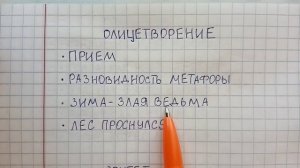 ОЛИЦЕТВОРЕНИЕ
• ПРИЕМ
• РАЗНОВИДНОСТЬ МЕТАФОРЫ
• ЗИМА - ЗЛАЯ ВЕДЬМА
• ЛЕС ПРОСНУЛСЯ